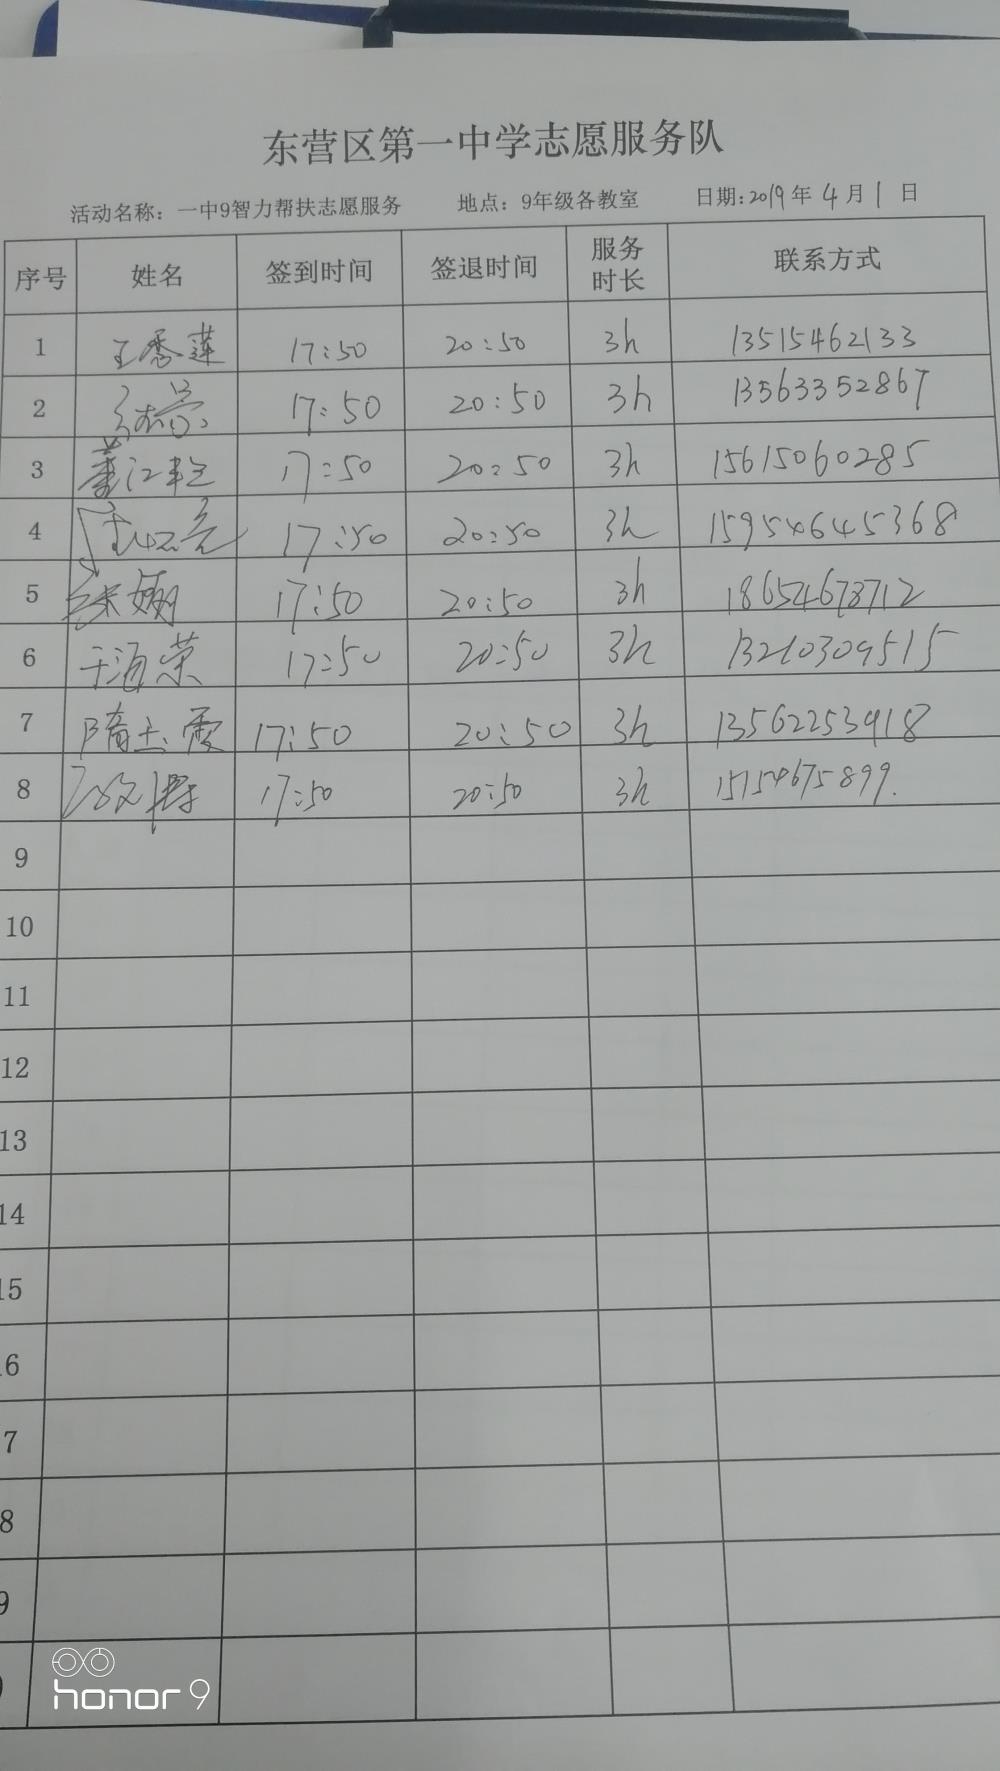 东营区第一中学志愿服务队
活动名称：一中9智力帮扶志愿服务 地点：9年级各教室 日期：2019年4月1日
序号 姓名 签到时间 签退时间 服务时长 联系方式
1 王秀莲 17:50 20:50 3h 13515462133
2 17:50 20:50 3h 13563352867
3 17:50 20:50 3h 15615060285
4 17:50 20:50 3h 15954645368
5 17:50 20:50 3h 18654673712
6 于海荣 17:50 20:50 3h 13210309515
7 隋玉霞 17:50 20:50 3h 13562253918
8 17:50 20:50 3h 15154675899.
9
10
11
12
13
14
15
16
7
8
9
honor 9